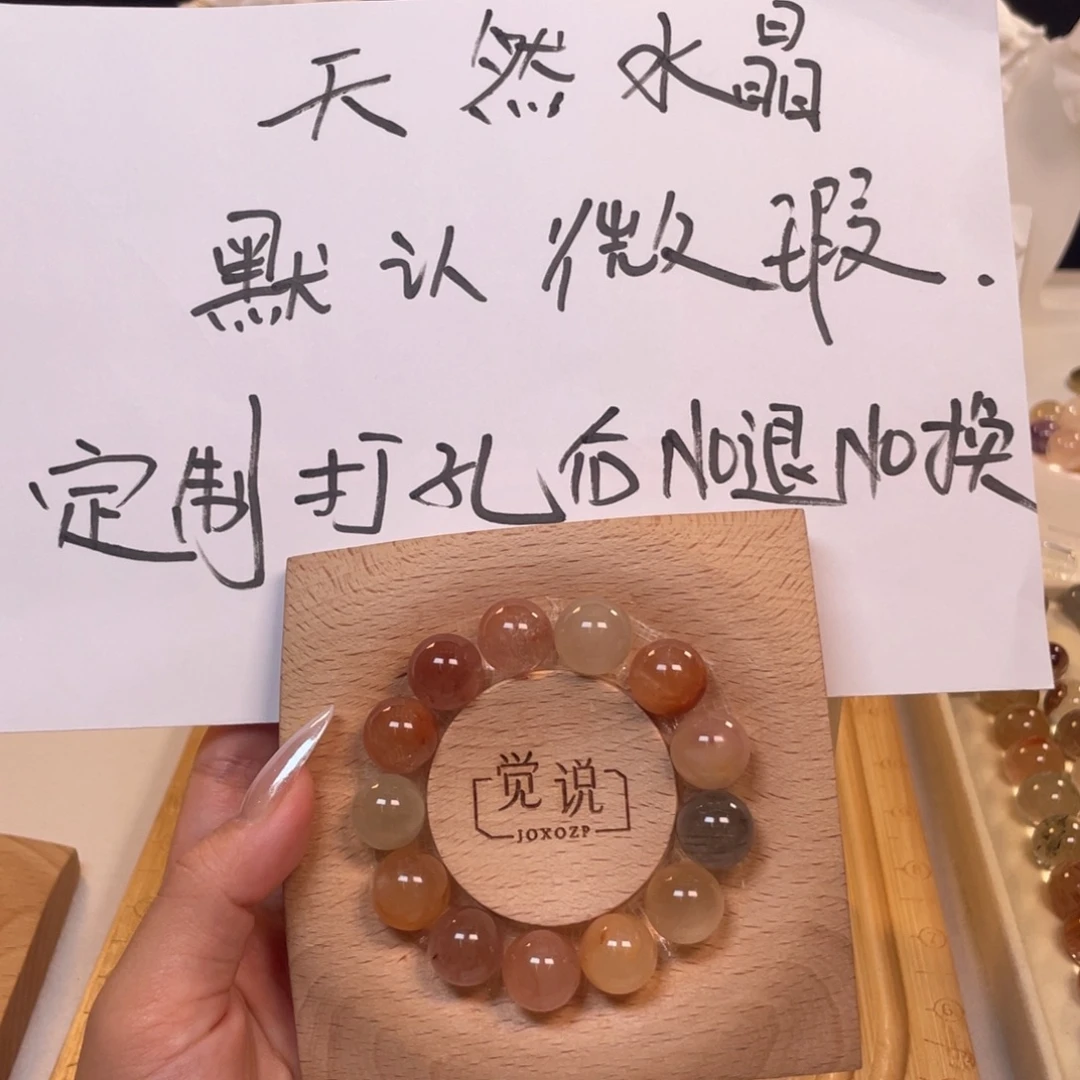 天然水晶
默认微瑕.
定制打孔后NO退NO换
觉说
JOXOZP